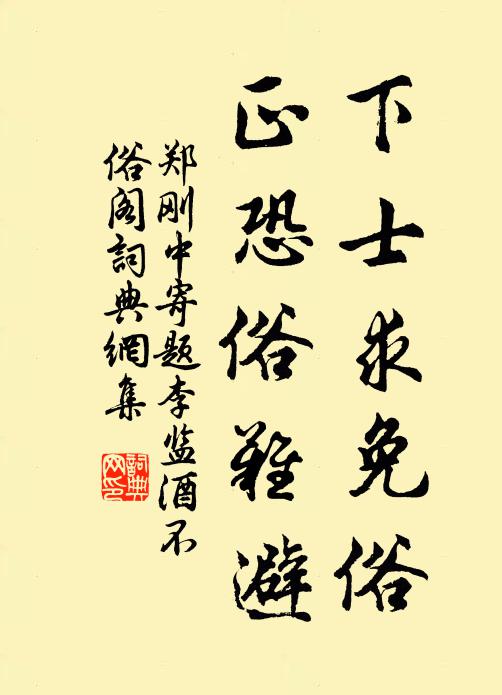 下士求免俗
正恐俗难避
郑刚中寄题李监酒不
俗阁詞典網集
詞典
网印